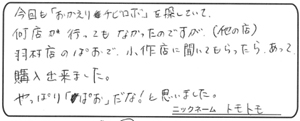 今回も「おかえりチビロボ」を探していて、
何店か行ってもなかったのですが、(他の店)
羽村店のぱおで、小作店に聞いてもらったら、あって
購入出来ました。
やっぱり「ぱお」だな！と思いました。
ニックネーム トモトモ